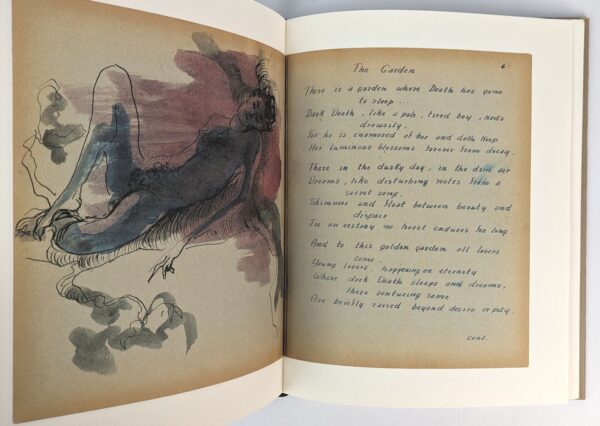 The Garden
6
There is a garden where Death has gone
to sleep ...
Dark Death, like a pale, tired boy, nods
drowsily.
For he is enamored of her and doth keep
Her luminous blossoms forever from decay.
There in the dusky day, in the dim air
Dreams, like disturbing notes from a
secret song,
Shimmer and float between beauty and
despair
In an ecstasy no heart endures for long.
And to this golden garden all lovers
come,
Young lovers, happening on eternity
Where dark Death sleeps and dreams,
there venturing some
Are briefly raised beyond desire or pity.
cont.